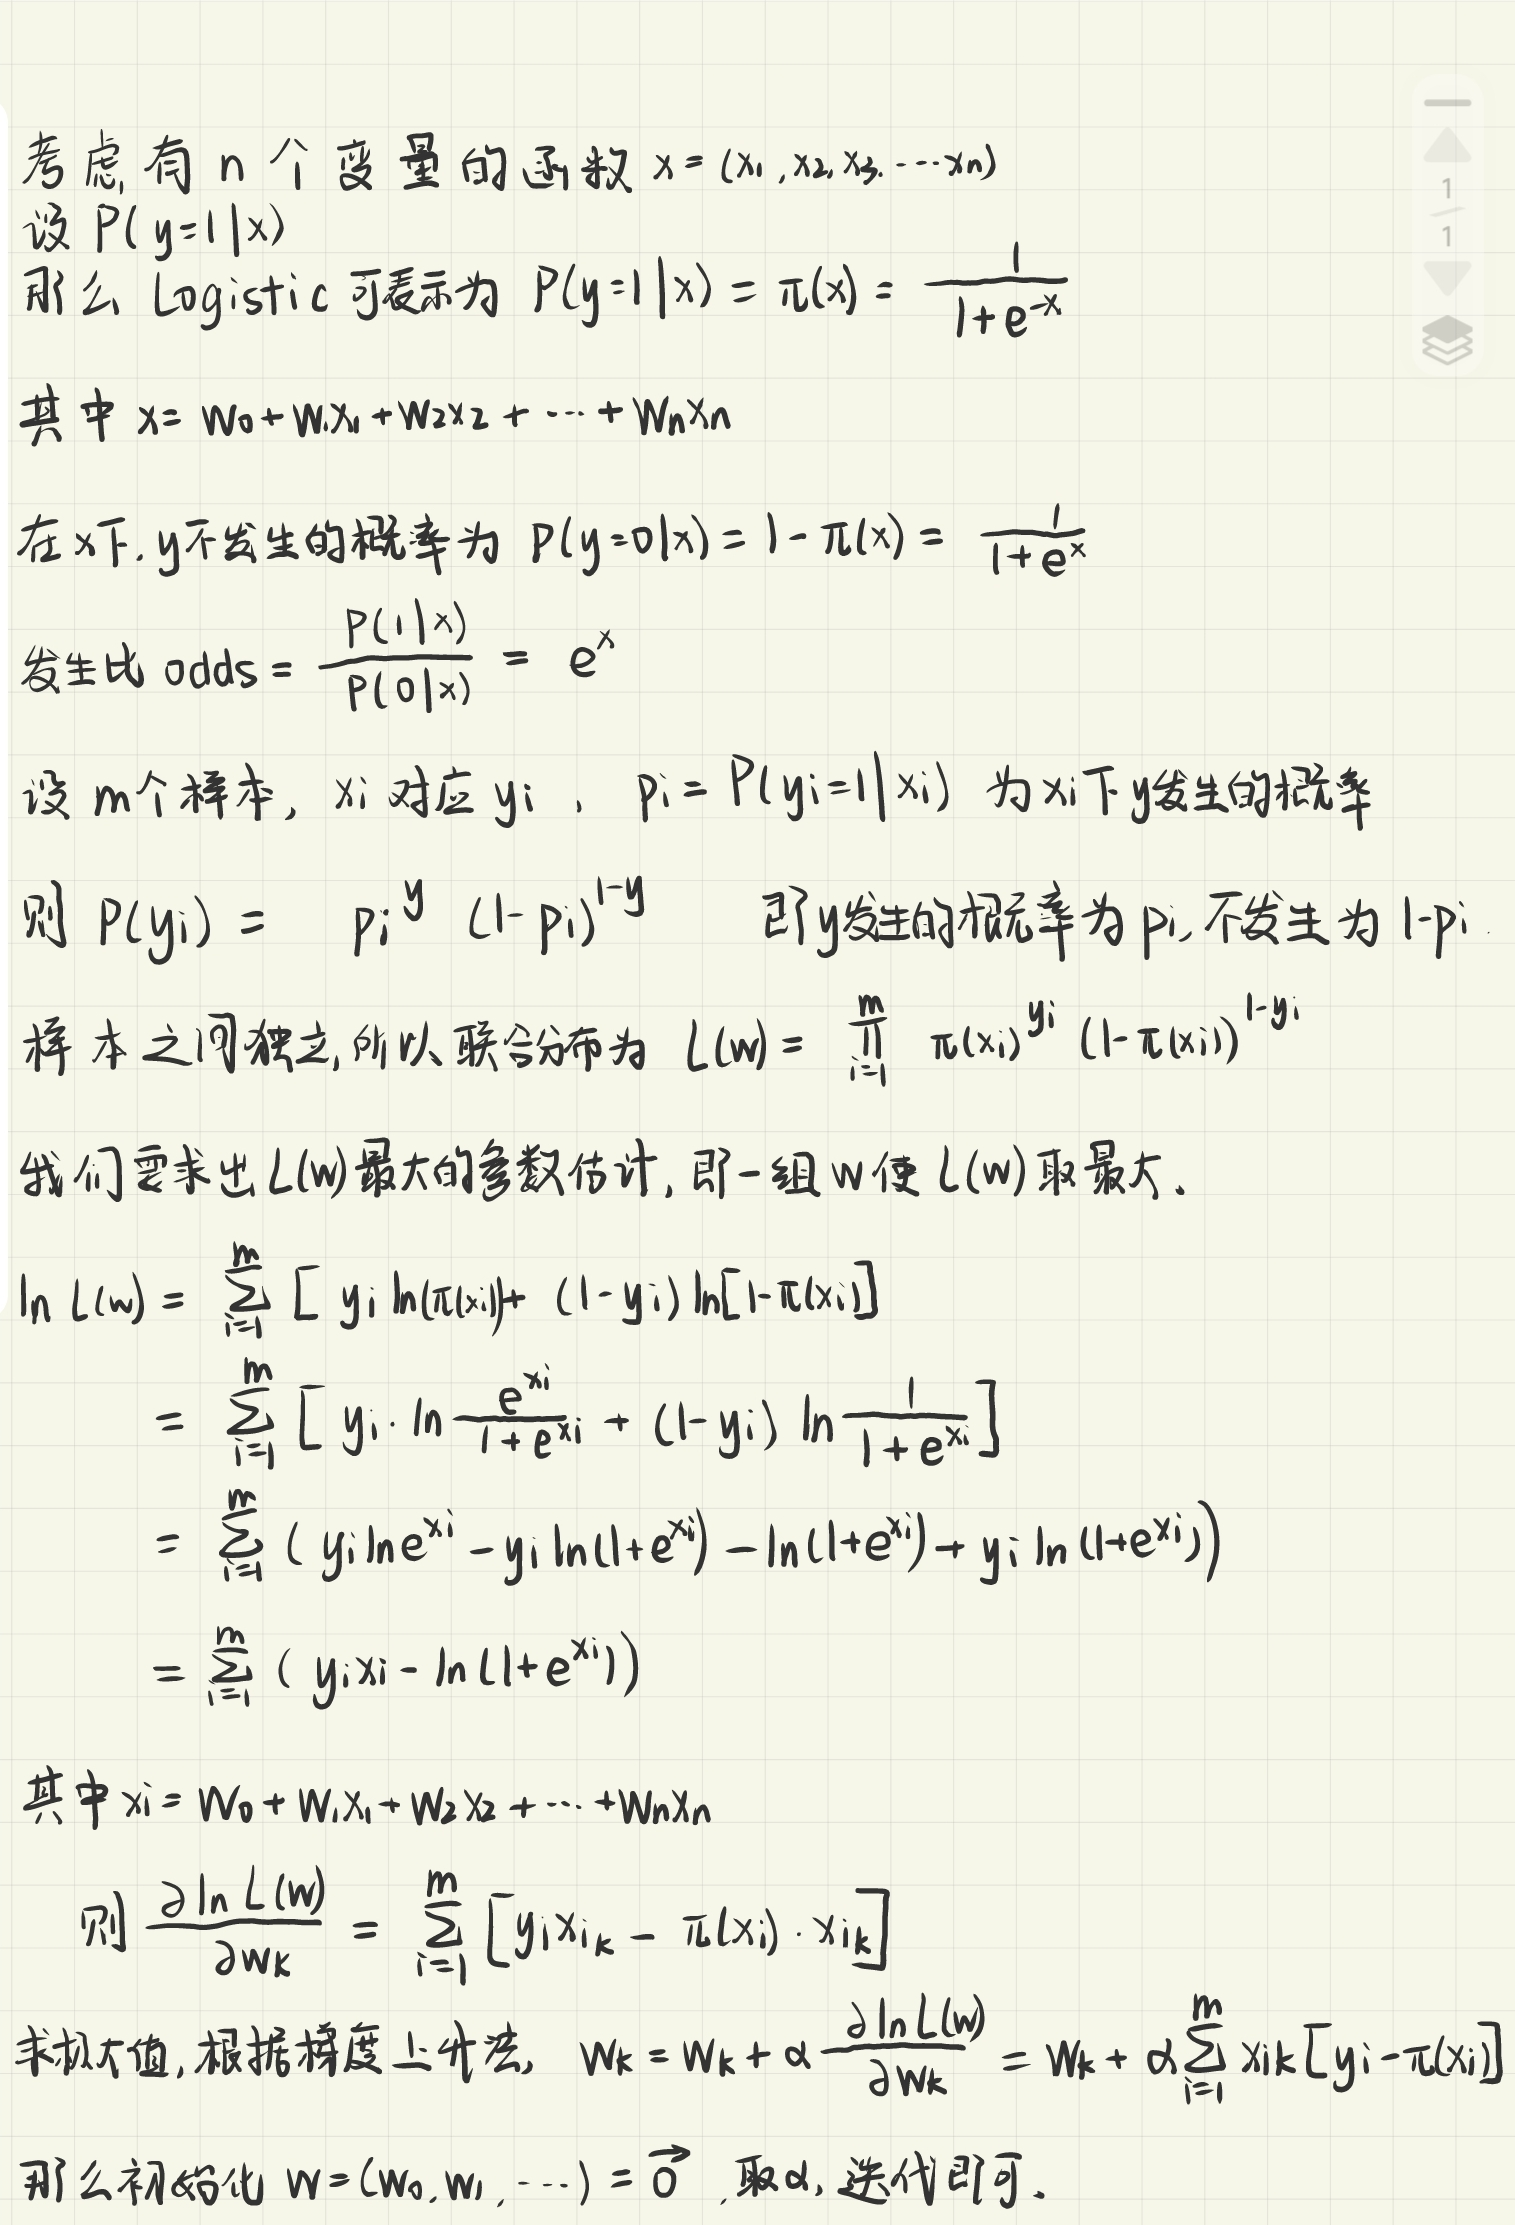 考虑有n个变量的函数 x = (x₁, x₂, x₃, ···· xₙ)
设 P(y=1|x)
那么 Logistic 可表示为 P(y=1|x) = π(x) = 1/(1+e^(-x))
其中 x = w₀ + w₁x₁ + w₂x₂ + ··· + wₙxₙ
在x下, y不发生的概率为 P(y=0|x) = 1 - π(x) = 1/(1+e^x)
发生比 odds = P(1|x)/P(0|x) = e^x
设 m个样本, xi 对应 yi , pi = P(yi=1|xi) 为 xi下 y发生的概率
则 P(yi) = pi^y (1-pi)^(1-y) 即y发生的概率为pi, 不发生为 1-pi
样本之间独立, 所以联合分布为 L(w) = ∏_{i=1}^{m} π(xi)^(yi) (1-π(xi))^(1-yi)
我们要求出L(w)最大的参数估计, 即一组w使L(w)取最大.
ln L(w) = ∑_{i=1}^{m} [ yi ln(π(xi)) + (1-yi) ln[1-π(xi)]
= ∑_{i=1}^{m} [ yi · ln e^(xi)/(1+e^(xi)) + (1-yi) ln 1/(1+e^(xi)) ]
= ∑_{i=1}^{m} ( yi ln e^(xi) - yi ln(1+e^(xi)) - ln(1+e^(xi)) + yi ln(1+e^(xi)) )
= ∑_{i=1}^{m} ( yi xi - ln(1+e^(xi)) )
其中 xi = w₀ + w₁x₁ + w₂x₂ + ··· + wₙxₙ
则 ∂ln L(w)/∂wk = ∑_{i=1}^{m} [ yi xik - π(xi) · xik ]
求极大值, 根据梯度上升法, wk = wk + α ∂ln L(w)/∂wk = wk + α ∑_{i=1}^{m} xik [yi - π(xi)]
那么初始化 w = (w₀, w₁, ···) = 0⃗, 取α, 迭代即可.
1
1